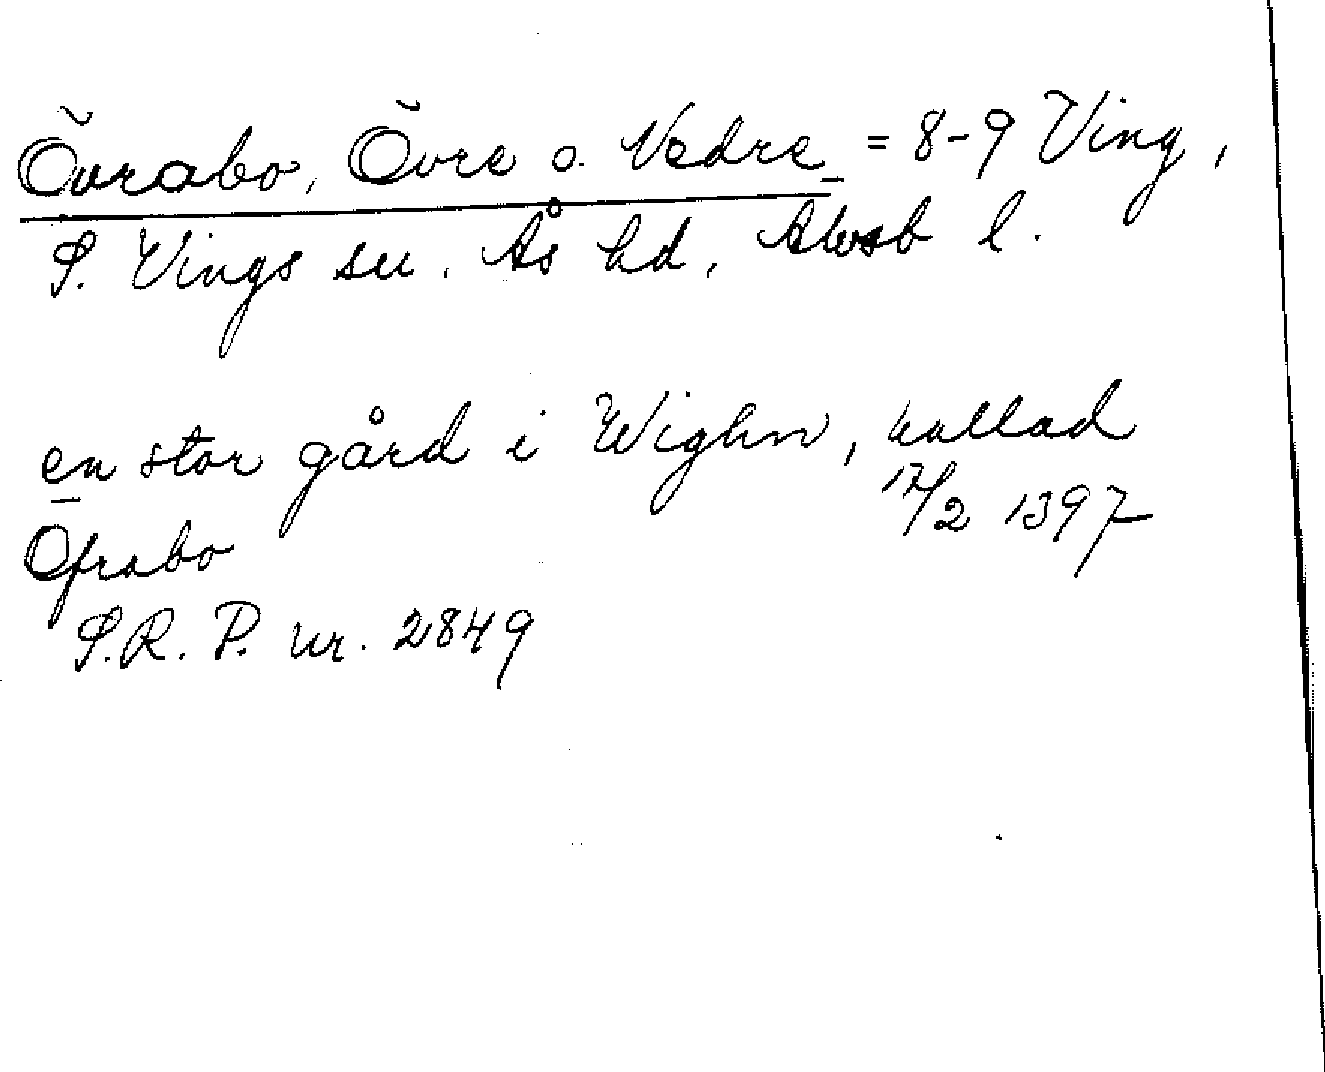 Övrabo, Övre o. Nedre = 8-9 Ving,
S. Vings sn. Ås hd, Älvsb l.
en stor gård i Wighn, kallad
Öfrabo 17/2 1397
S.R.P. nr. 2849